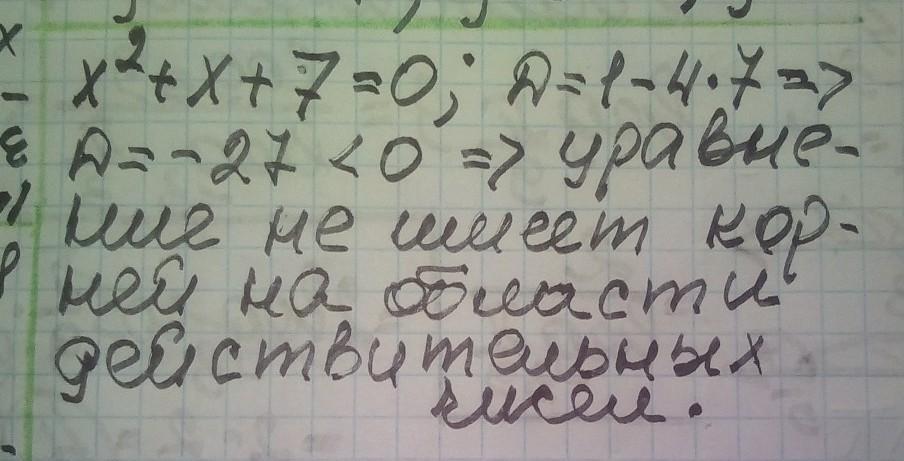 x²+x+7=0; D=1-4·7=>
D=-27<0 => уравне-
ние не имеет кор-
ней на области
действительных
чисел.